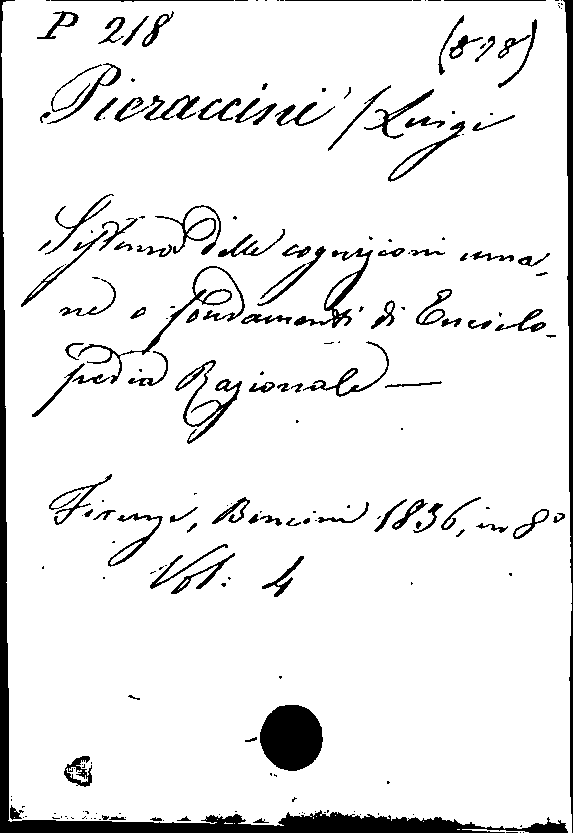 P 218 (878)
Pieraccini / Luigi
Sistema delle cognizioni uma-
ne o fondamenti di Enciclo-
pedia Razionale —
Firenze, Bencini 1836, in 8°
Vol: 4